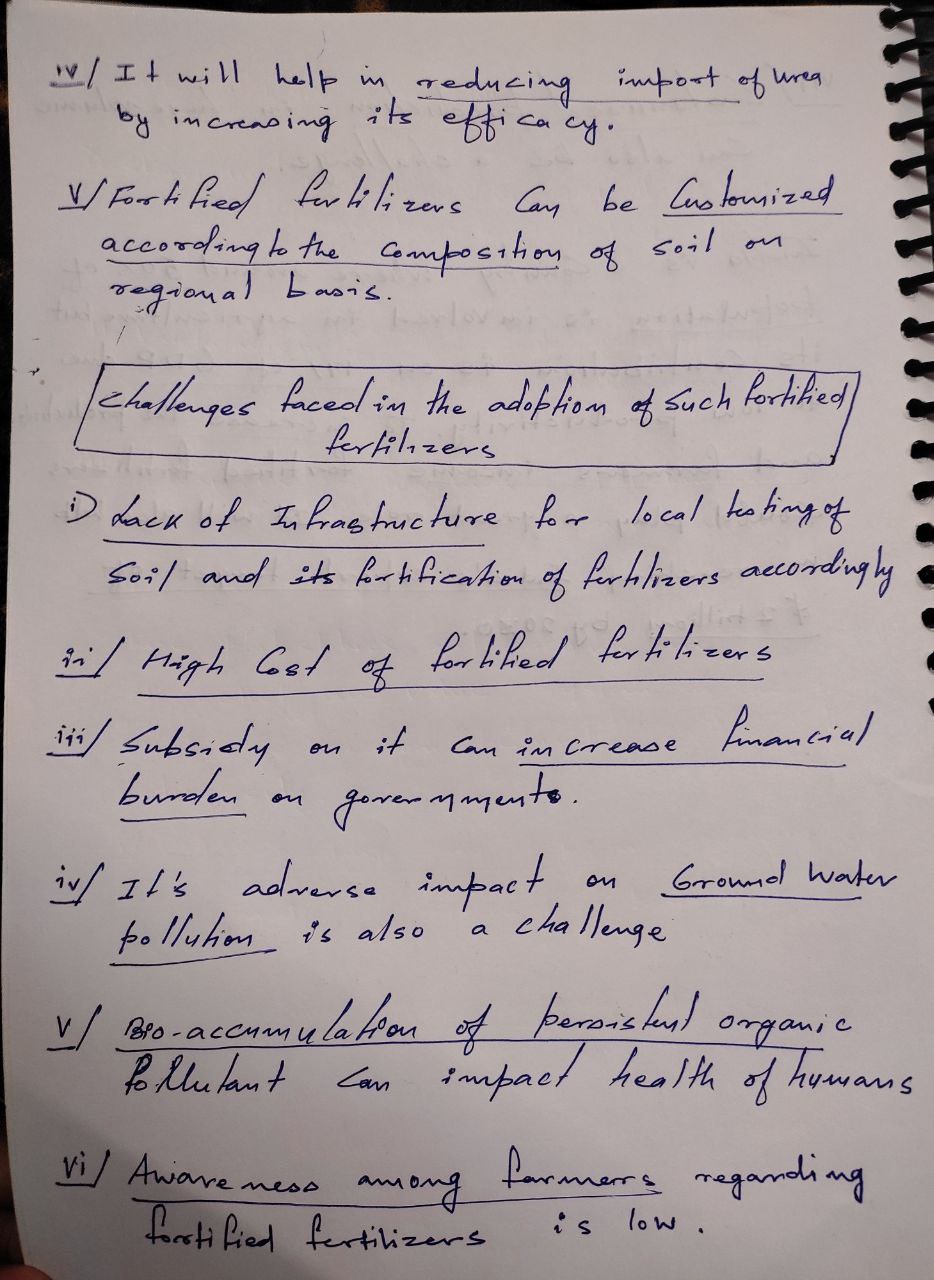 iv/ It will help in reducing import of Urea
by increasing its efficacy.
v/ Fortified fertilizers can be Customized
according to the composition of soil on
regional basis.
Challenges faced in the adoption of such fortified
fertilizers
i) Lack of Infrastructure for local testing of
Soil and its fortification of fertilizers accordingly
ii/ High Cost of fortified fertilizers
iii/ Subsidy on it can increase financial
burden on governments.
iv/ It's adverse impact on Ground water
pollution is also a challenge
v/ Bio-accumulation of persistent organic
Pollutant can impact health of humans
vi/ Awareness among farmers regarding
fortified fertilizers is low.